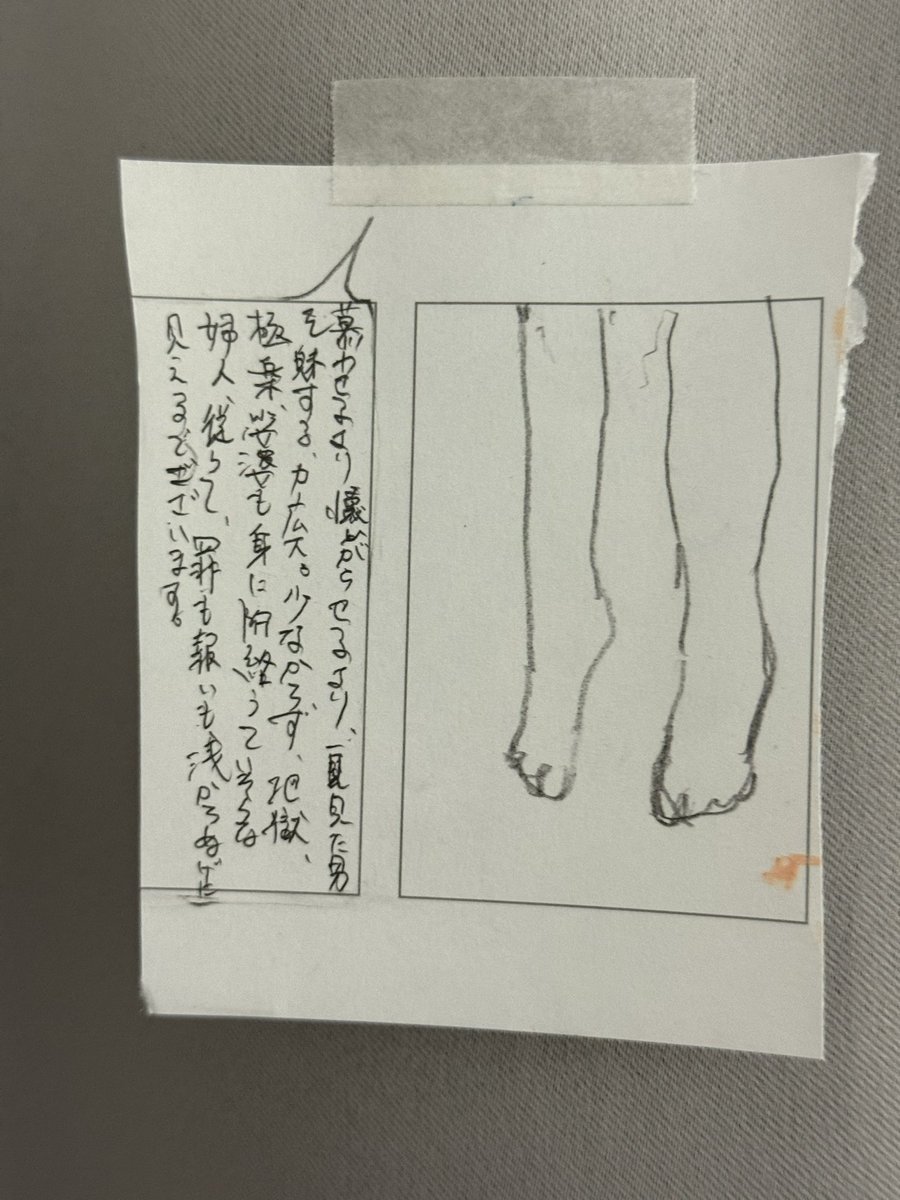 慕わせるより懐がらせるより、一目見た男
を魅する、力広大。少なからず、地獄、
極楽、娑婆も身に附絡うていそうな
婦人、従って、罪も報いも浅からぬげに
見えるでございます。